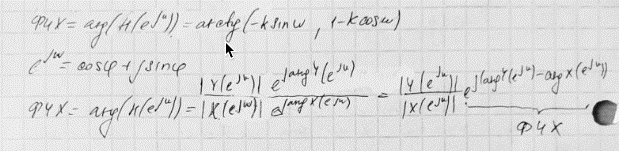 ФЧХ = arg(H(e^jω)) = arctg(-k sinω, 1-k cosω)
e^jω = cosφ + j sinφ
ФЧХ = arg(H(e^jω)) = |Y(e^jω)| e^{j arg Y(e^jω)} / |X(e^jω)| e^{j arg X(e^jω)} = |Y(e^jω)| / |X(e^jω)| e^{j(arg Y(e^jω) - arg X(e^jω))}
ФЧХ